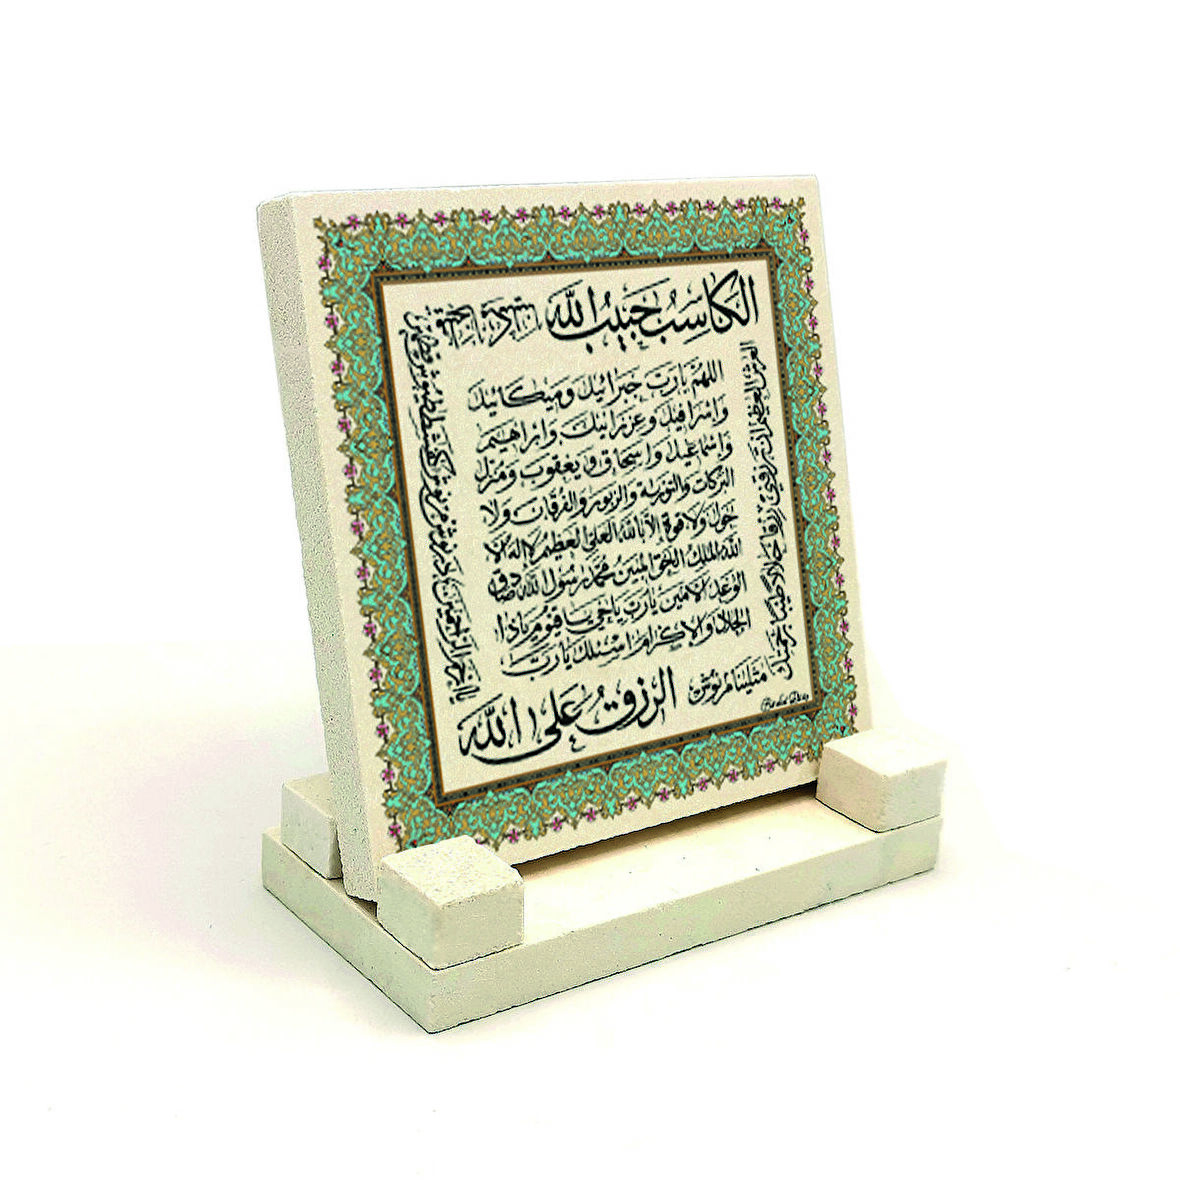 الكاسب حبيب الله
اللهم يارب جبرائيل وميكائيل
واسرافيل وعزرائيل وابراهيم
واسماعيل واسحاق ويعقوب ومنزل
البركات والتورية والزبور والفرقان ولا
حول ولا قوة الا بالله العلي العظيم لا اله الا
الله الملك الحق المبين محمد رسول الله صادق
الوعد الامين يارب يارب ياحي ياقيوم ياذا
الجلال والاكرام اسئلك يارب
العرش العظيم ان ترزقني رزقا حلالا طيبا برحمتك
يا ارحم الراحمين
الرزق على الله